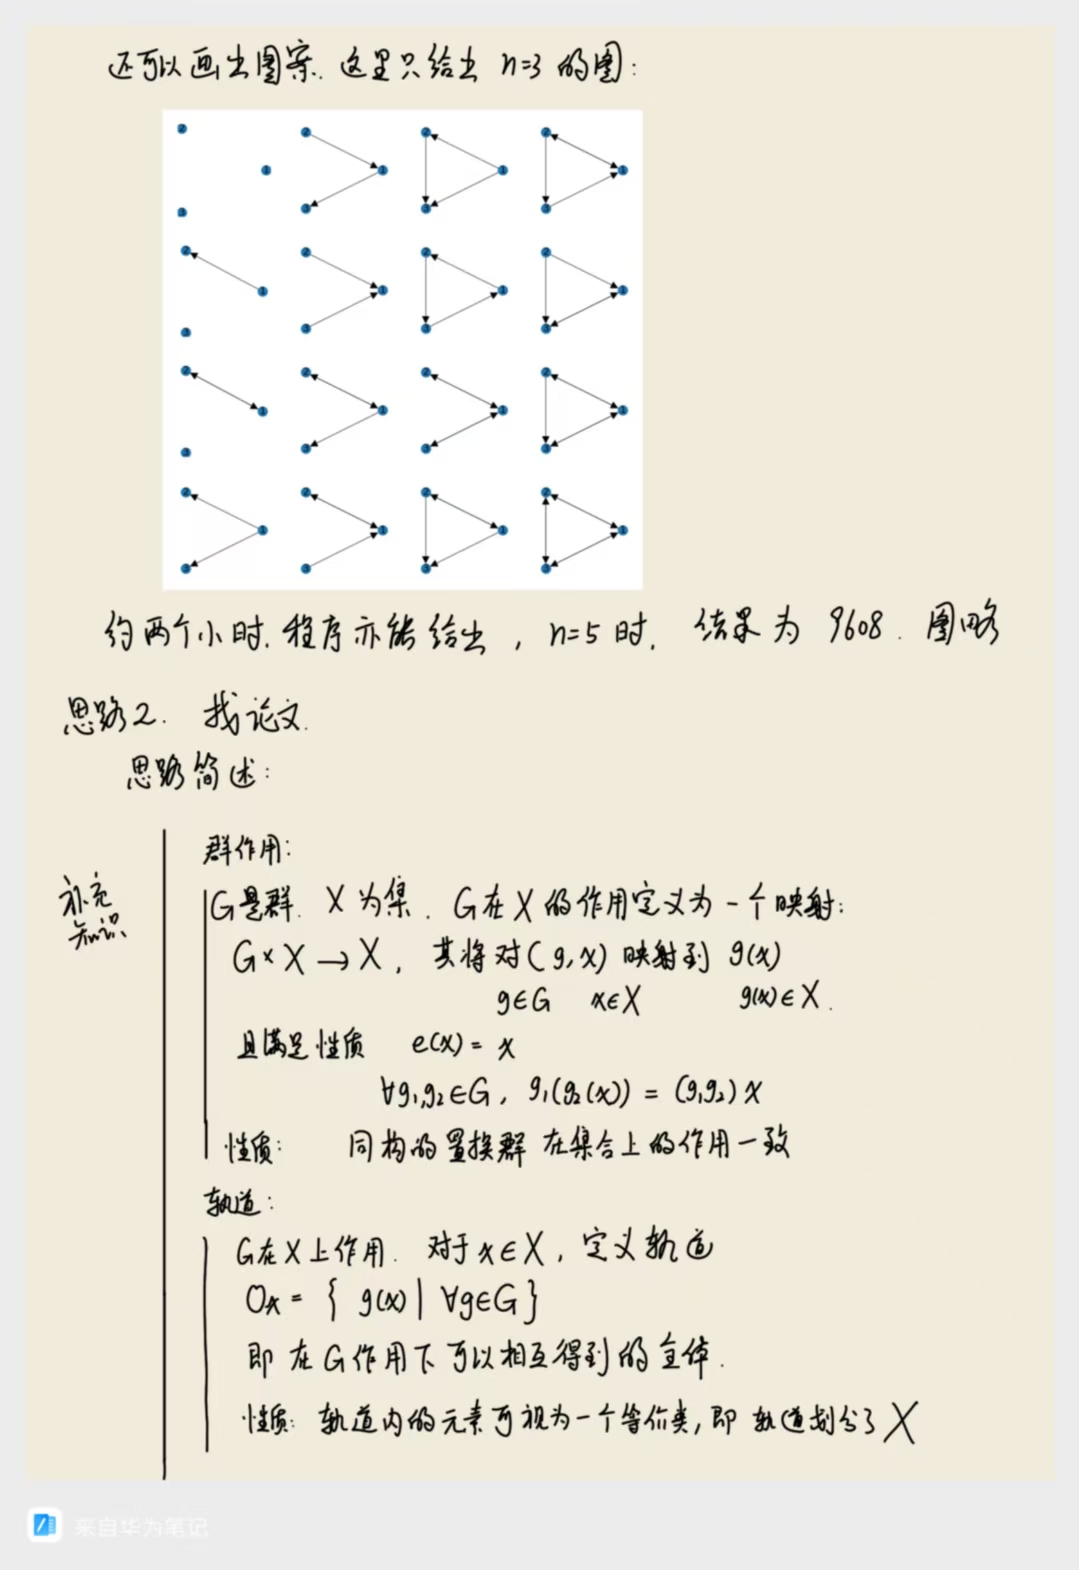 还可以画出图案. 这里只给出 n=3 的图:
约两个小时. 程序亦能给出, n=5 时, 结果为 9608. 图略
思路2. 找论文.
思路简述:
补充
知识
群作用:
G是群. X 为集. G在 X 的作用定义为一个映射:
G×X→X, 其将对(g,x) 映射到 g(x)
g∈G x∈X g(x)∈X.
且满足性质 e(x)=x
∀g₁,g₂∈G, g₁(g₂(x)) = (g₁g₂)x
性质: 同构的置换群在集合上的作用一致
轨道:
G在X上作用. 对于x∈X, 定义轨道
Ox = { g(x) | ∀g∈G }
即在G作用下可以相互得到的全体.
性质: 轨道内的元素可视为一个等价类, 即轨道划分了 X
来自华为笔记